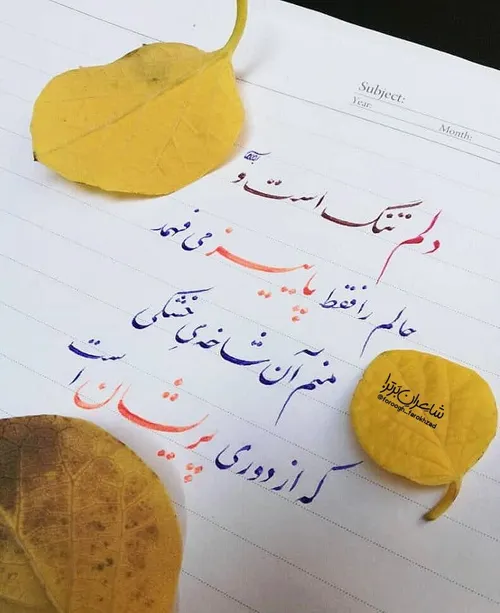 Subject:
Year:
Month:
دلم تنگ است و
حالم را فقط پاییز می فهمد
منم آن شاخه ی خشکی
که از دوری پریشان است
شاعران برتر!
@foroogh_farokhzad